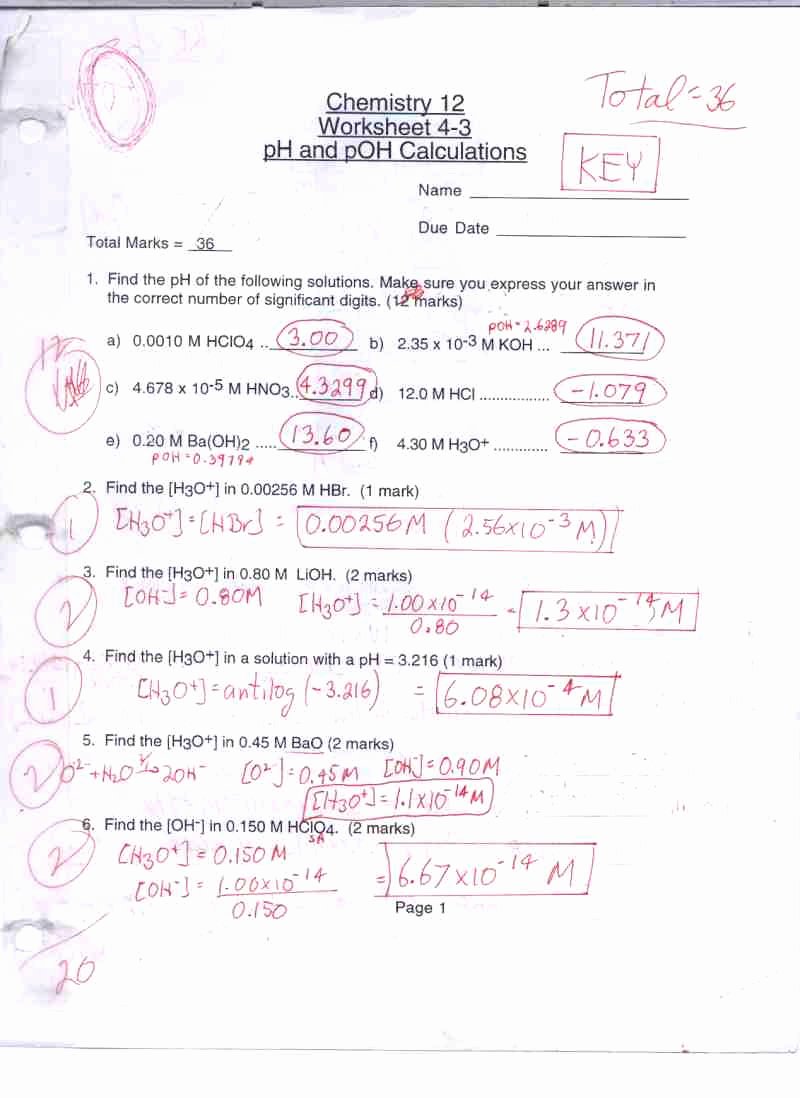 Total = 36
Chemistry 12
Worksheet 4-3
pH and pOH Calculations
KEY
Name
Due Date
Total Marks = 36
1. Find the pH of the following solutions. Make sure you express your answer in
the correct number of significant digits. (12 marks)
pOH = 2.6289
a) 0.0010 M HClO4 .. 3.00 b) 2.35 x 10-3 M KOH ... 11.371
12
c) 4.678 x 10-5 M HNO3.. 4.3299 d) 12.0 M HCl ................ -1.079
e) 0.20 M Ba(OH)2 ..... 13.60 f) 4.30 M H3O+ ............ -0.633
pOH = 0.39794
2. Find the [H3O+] in 0.00256 M HBr. (1 mark)
1 [H3O+] = [HBr] = 0.00256M (2.56x10-3 M)
3. Find the [H3O+] in 0.80 M LiOH. (2 marks)
2 [OH-] = 0.80M [H3O+] = 1.00x10-14 = 1.3x10-14 M
0.80
4. Find the [H3O+] in a solution with a pH = 3.216 (1 mark)
1 [H3O+] = antilog (-3.216) = 6.08x10-4 M
5. Find the [H3O+] in 0.45 M BaO (2 marks)
2 O2- + H2O → 2OH- [O2-] = 0.45M [OH-] = 0.90M
[H3O+] = 1.1x10-14 M
6. Find the [OH-] in 0.150 M HClO4. (2 marks)
SA
2 [H3O+] = 0.150 M
[OH-] = 1.00x10-14 = 6.67x10-14 M
0.150
Page 1
20